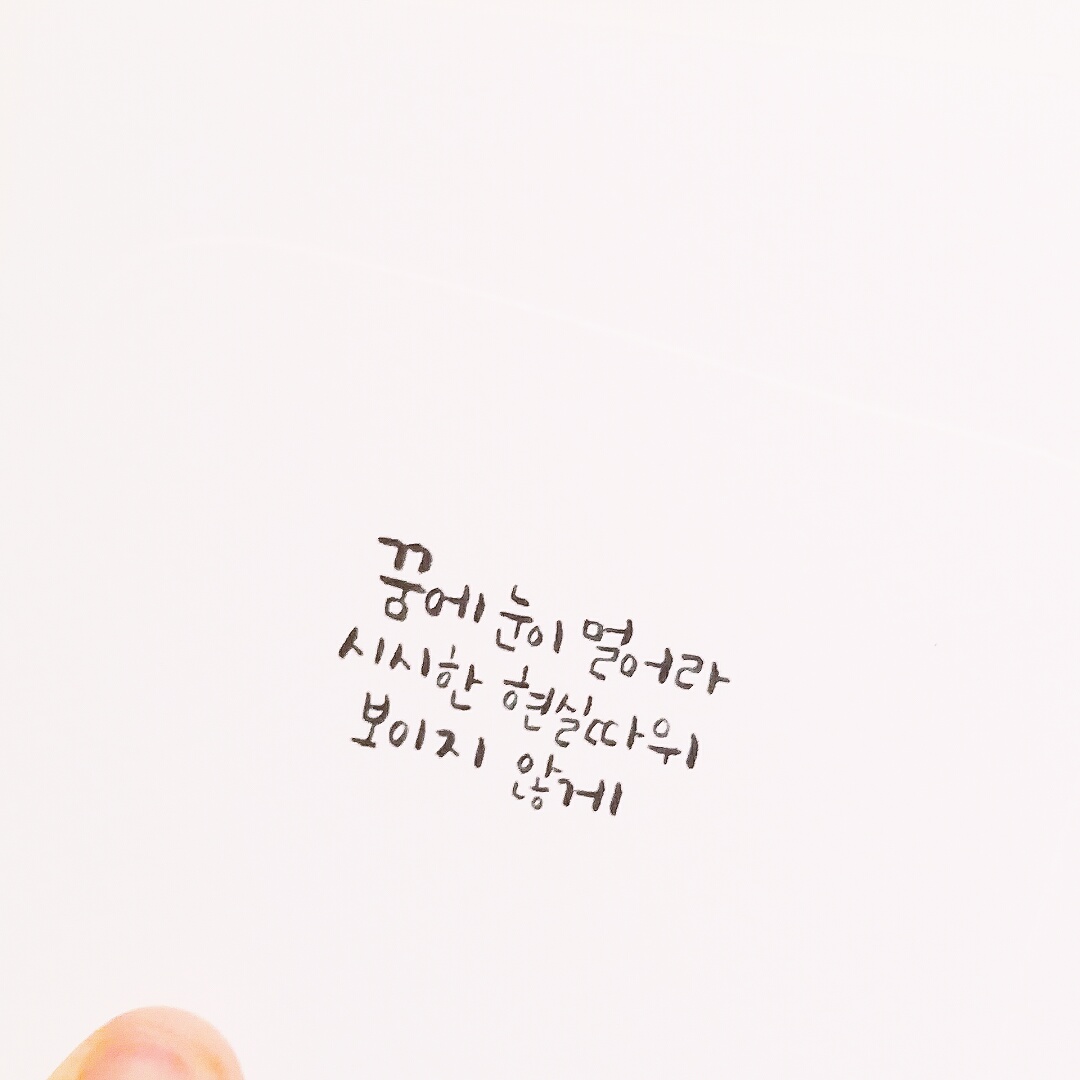 꿈에 눈이 멀어라
시시한 현실따위
보이지 않게